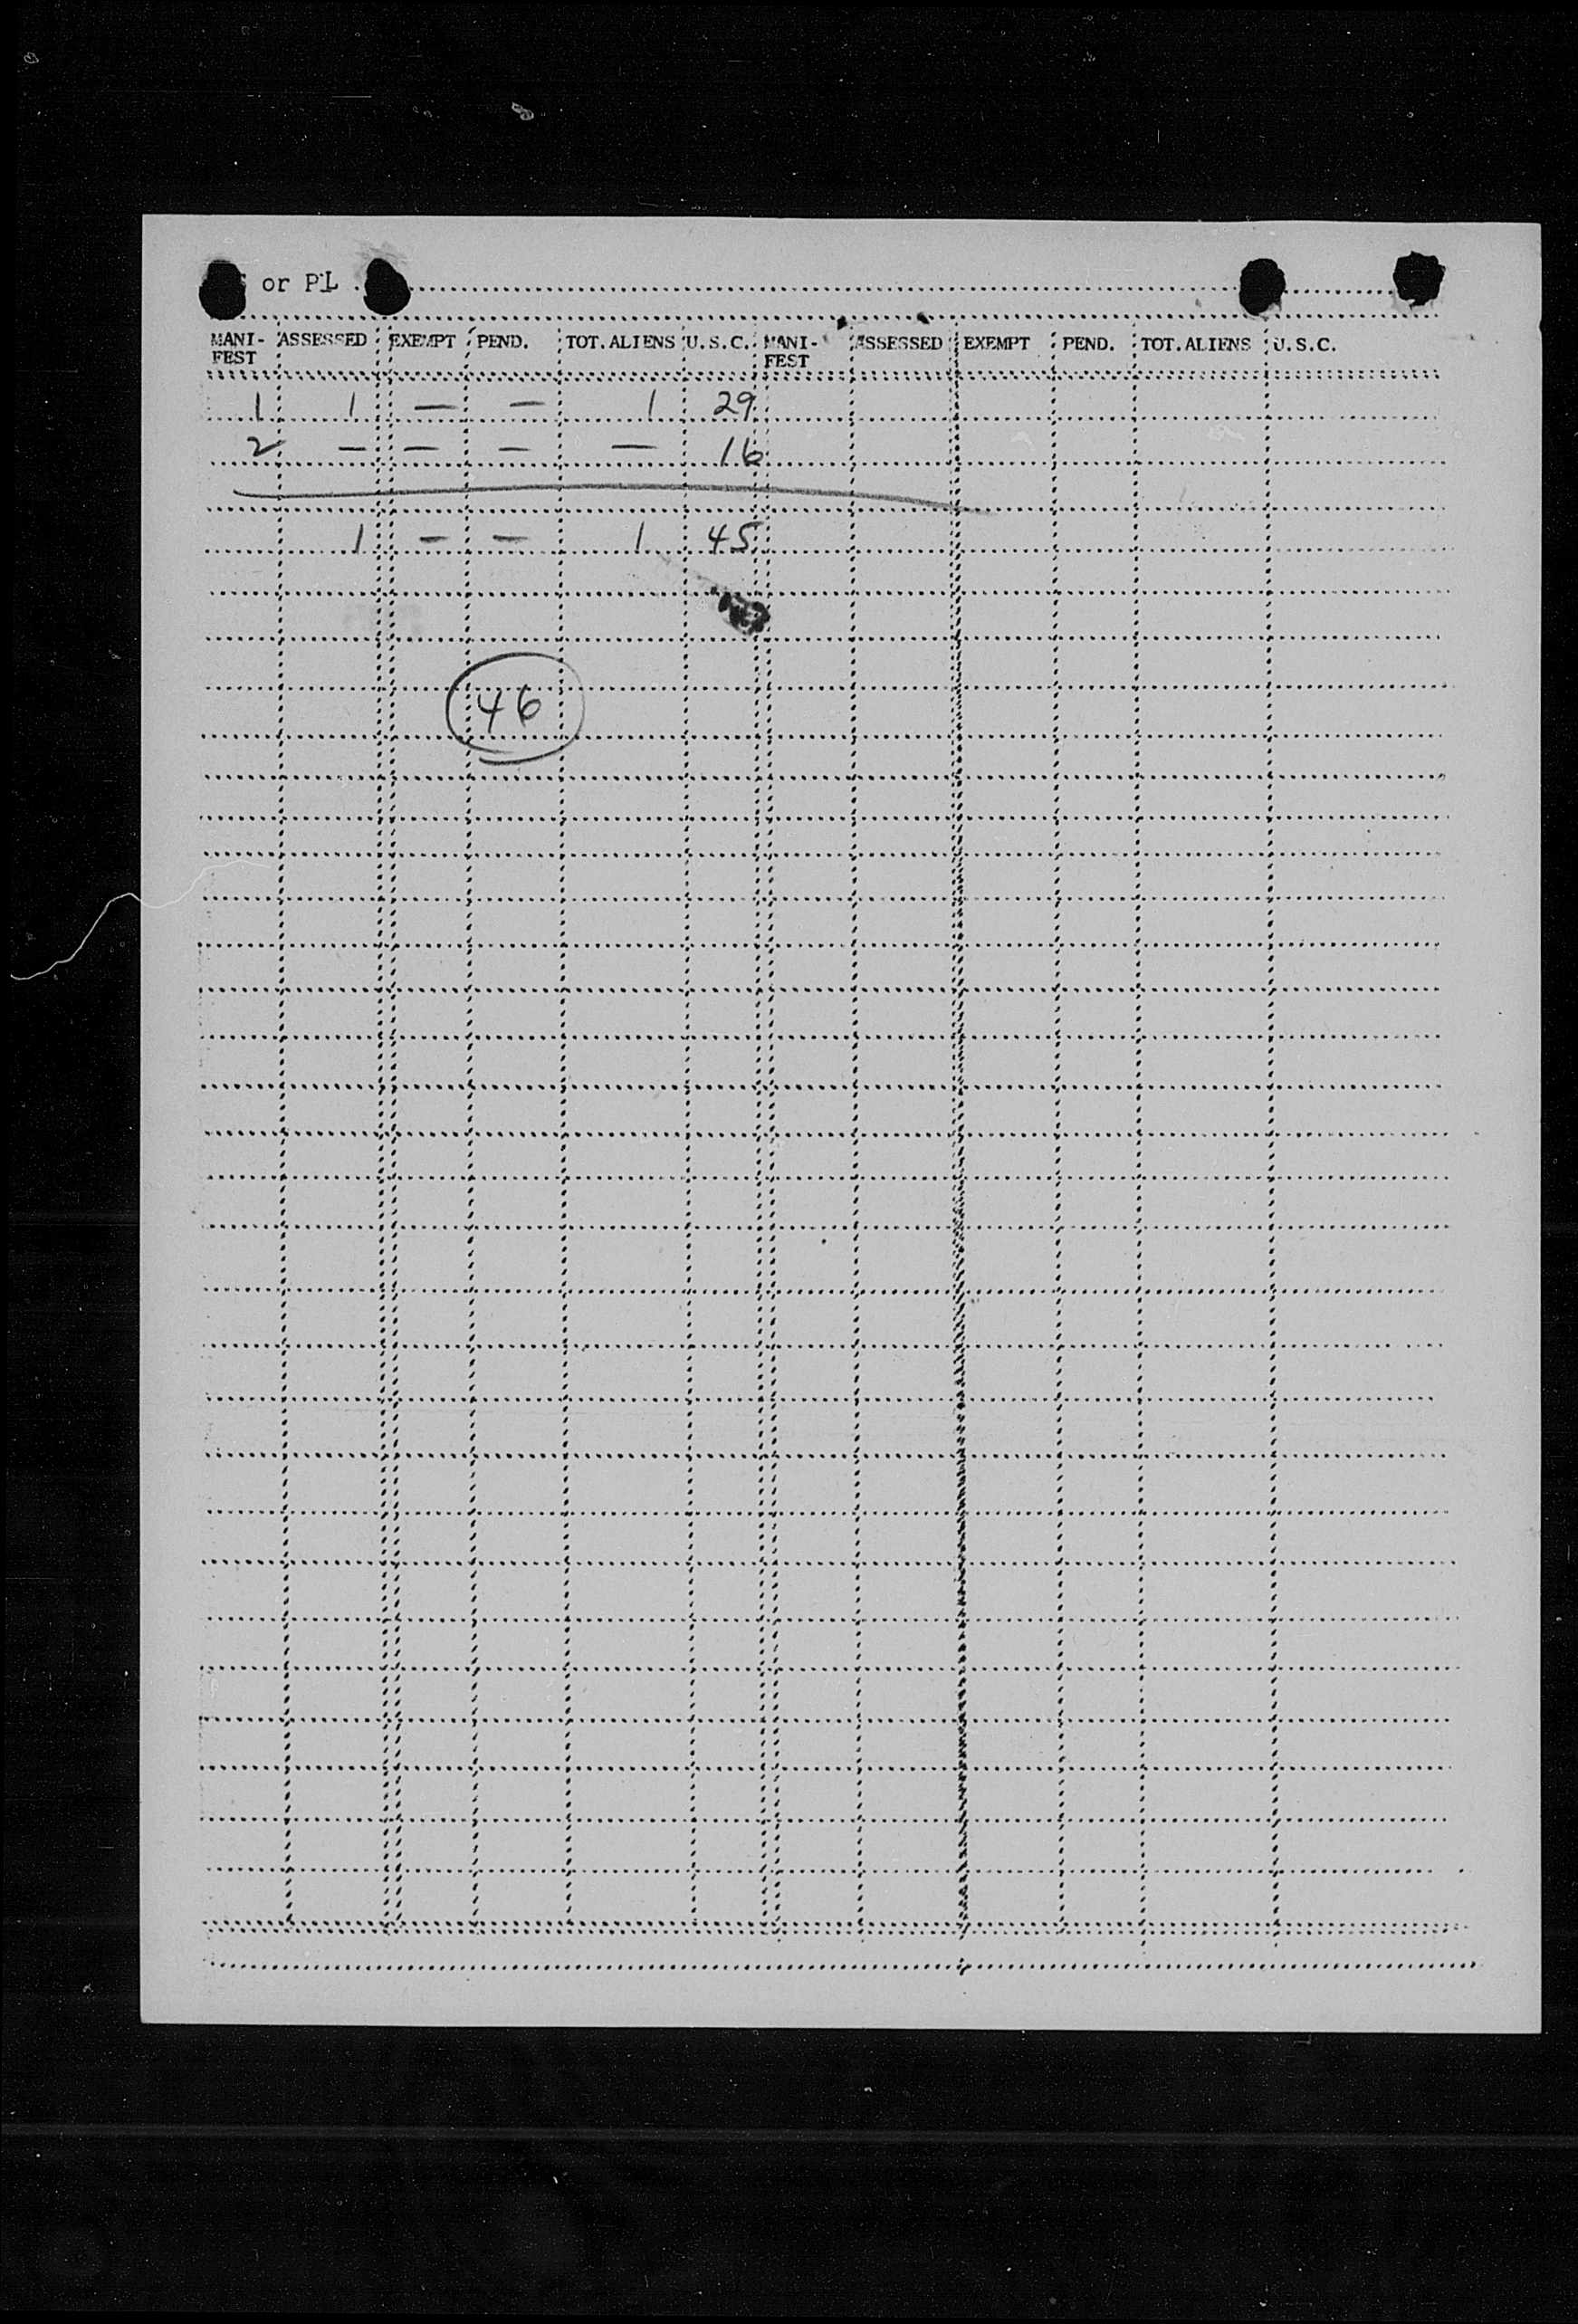 or PL
MANI-FEST ASSESSED EXEMPT PEND. TOT. ALIENS U.S.C. MANI-FEST ASSESSED EXEMPT PEND. TOT. ALIENS U.S.C.
1 1 — — 1 29
2 — — — — 16
1 — — 1 45
46